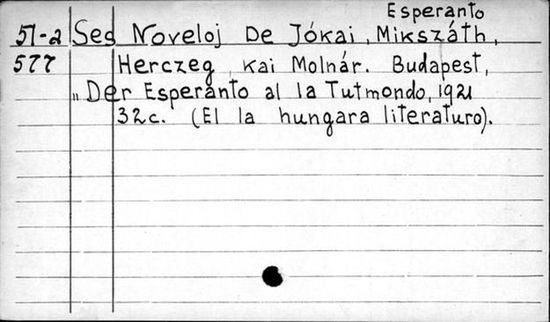 Esperanto
51-2 Ses Noveloj De Jókai, Mikszáth,
577 Herczeg, kai Molnár. Budapest,
„Der Esperanto al la Tutmondo, 1921
32c. (El la hungara literaturo).